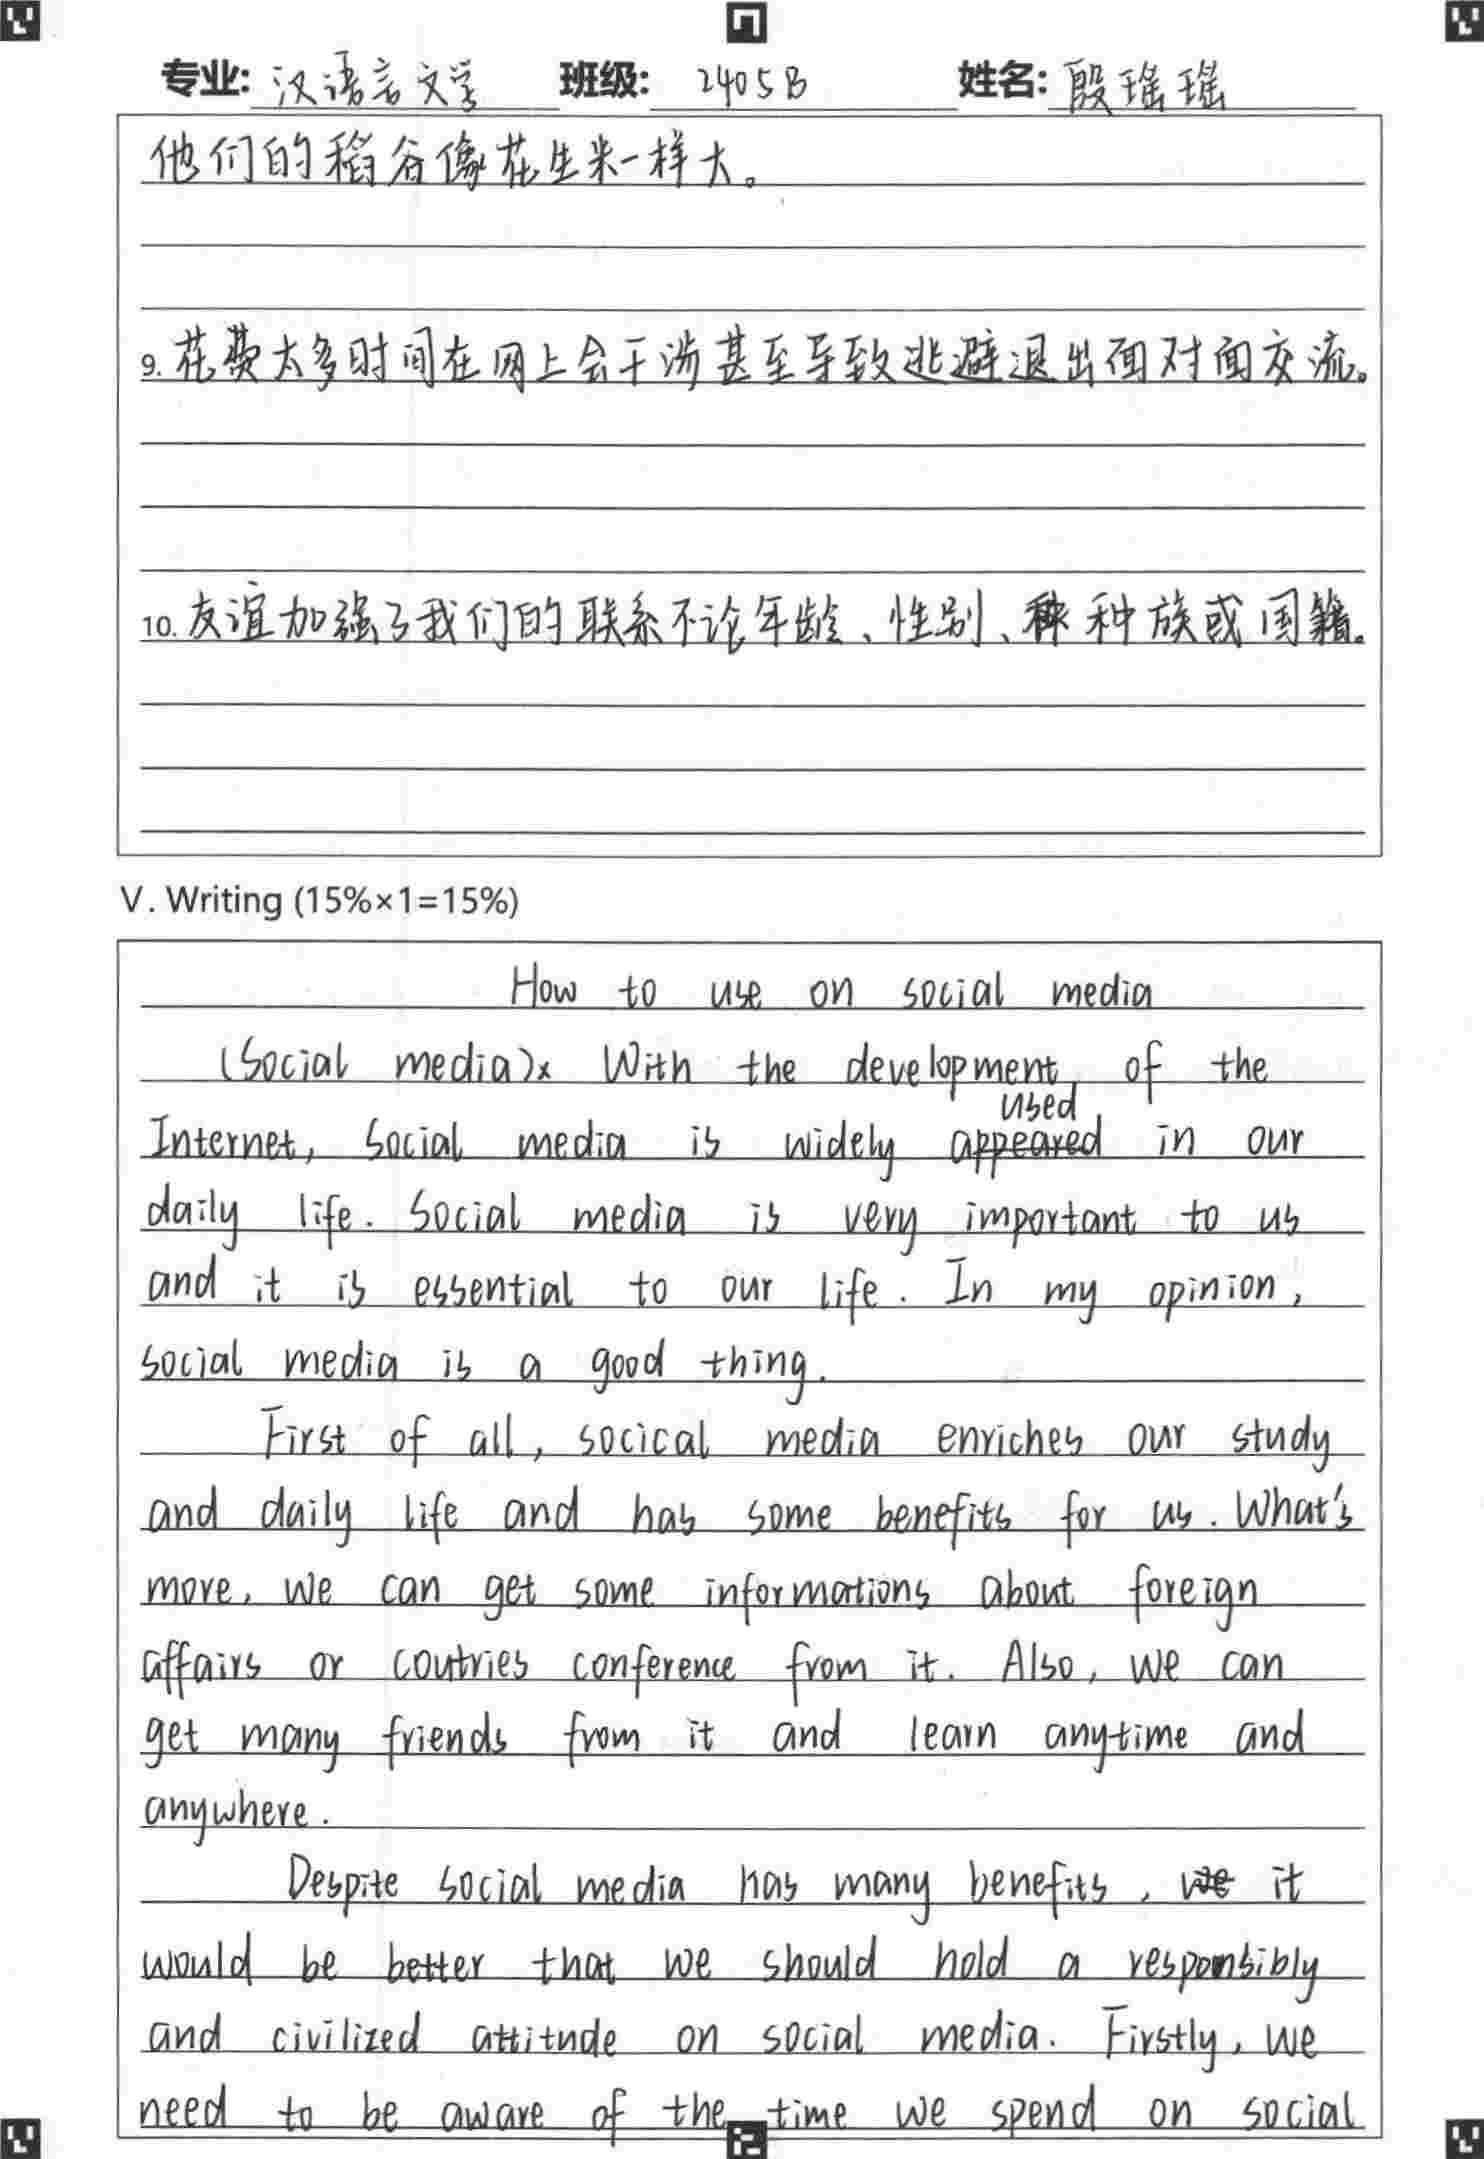 专业: 汉语言文学 班级: 2405B 姓名: 殷瑶瑶
他们的稻谷像花生米一样大。
9. 花费太多时间在网上会干涉甚至导致逃避退出面对面交流。
10. 友谊加强了我们的联系不论年龄、性别、种族或国籍。
V. Writing (15%×1=15%)
How to use on social media
(Social media)x With the development of the
used
Internet, social media is widely appeared in our
daily life. Social media is very important to us
and it is essential to our life. In my opinion,
social media is a good thing.
First of all, socical media enriches our study
and daily life and has some benefits for us. What's
more, we can get some informations about foreign
affairs or coutries conference from it. Also, we can
get many friends from it and learn anytime and
anywhere.
Despite social media has many benefits, we it
would be better that we should hold a responsibly
and civilized attitude on social media. Firstly, we
need to be aware of the time we spend on social